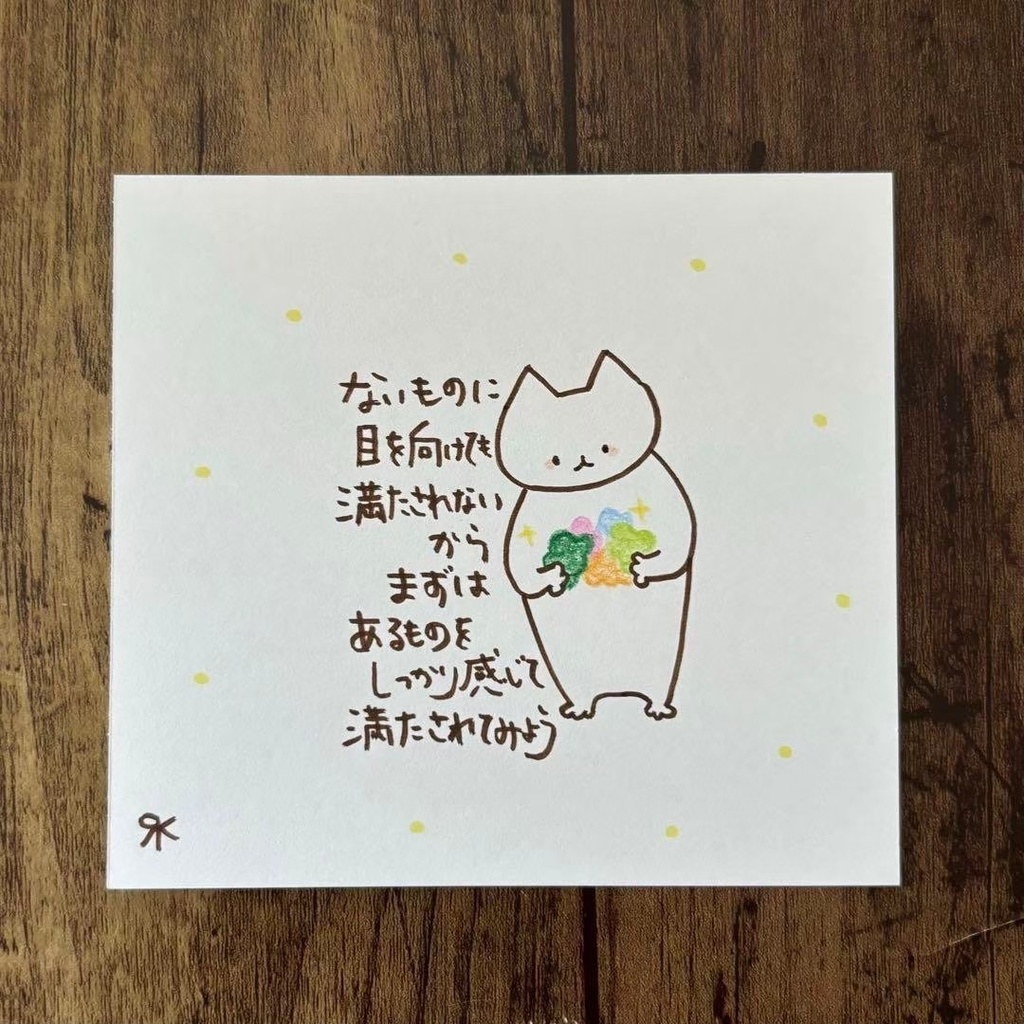 ないものに
目を向けても
満たされない
から
まずは
あるものを
しっかり感じて
満たされてみよう